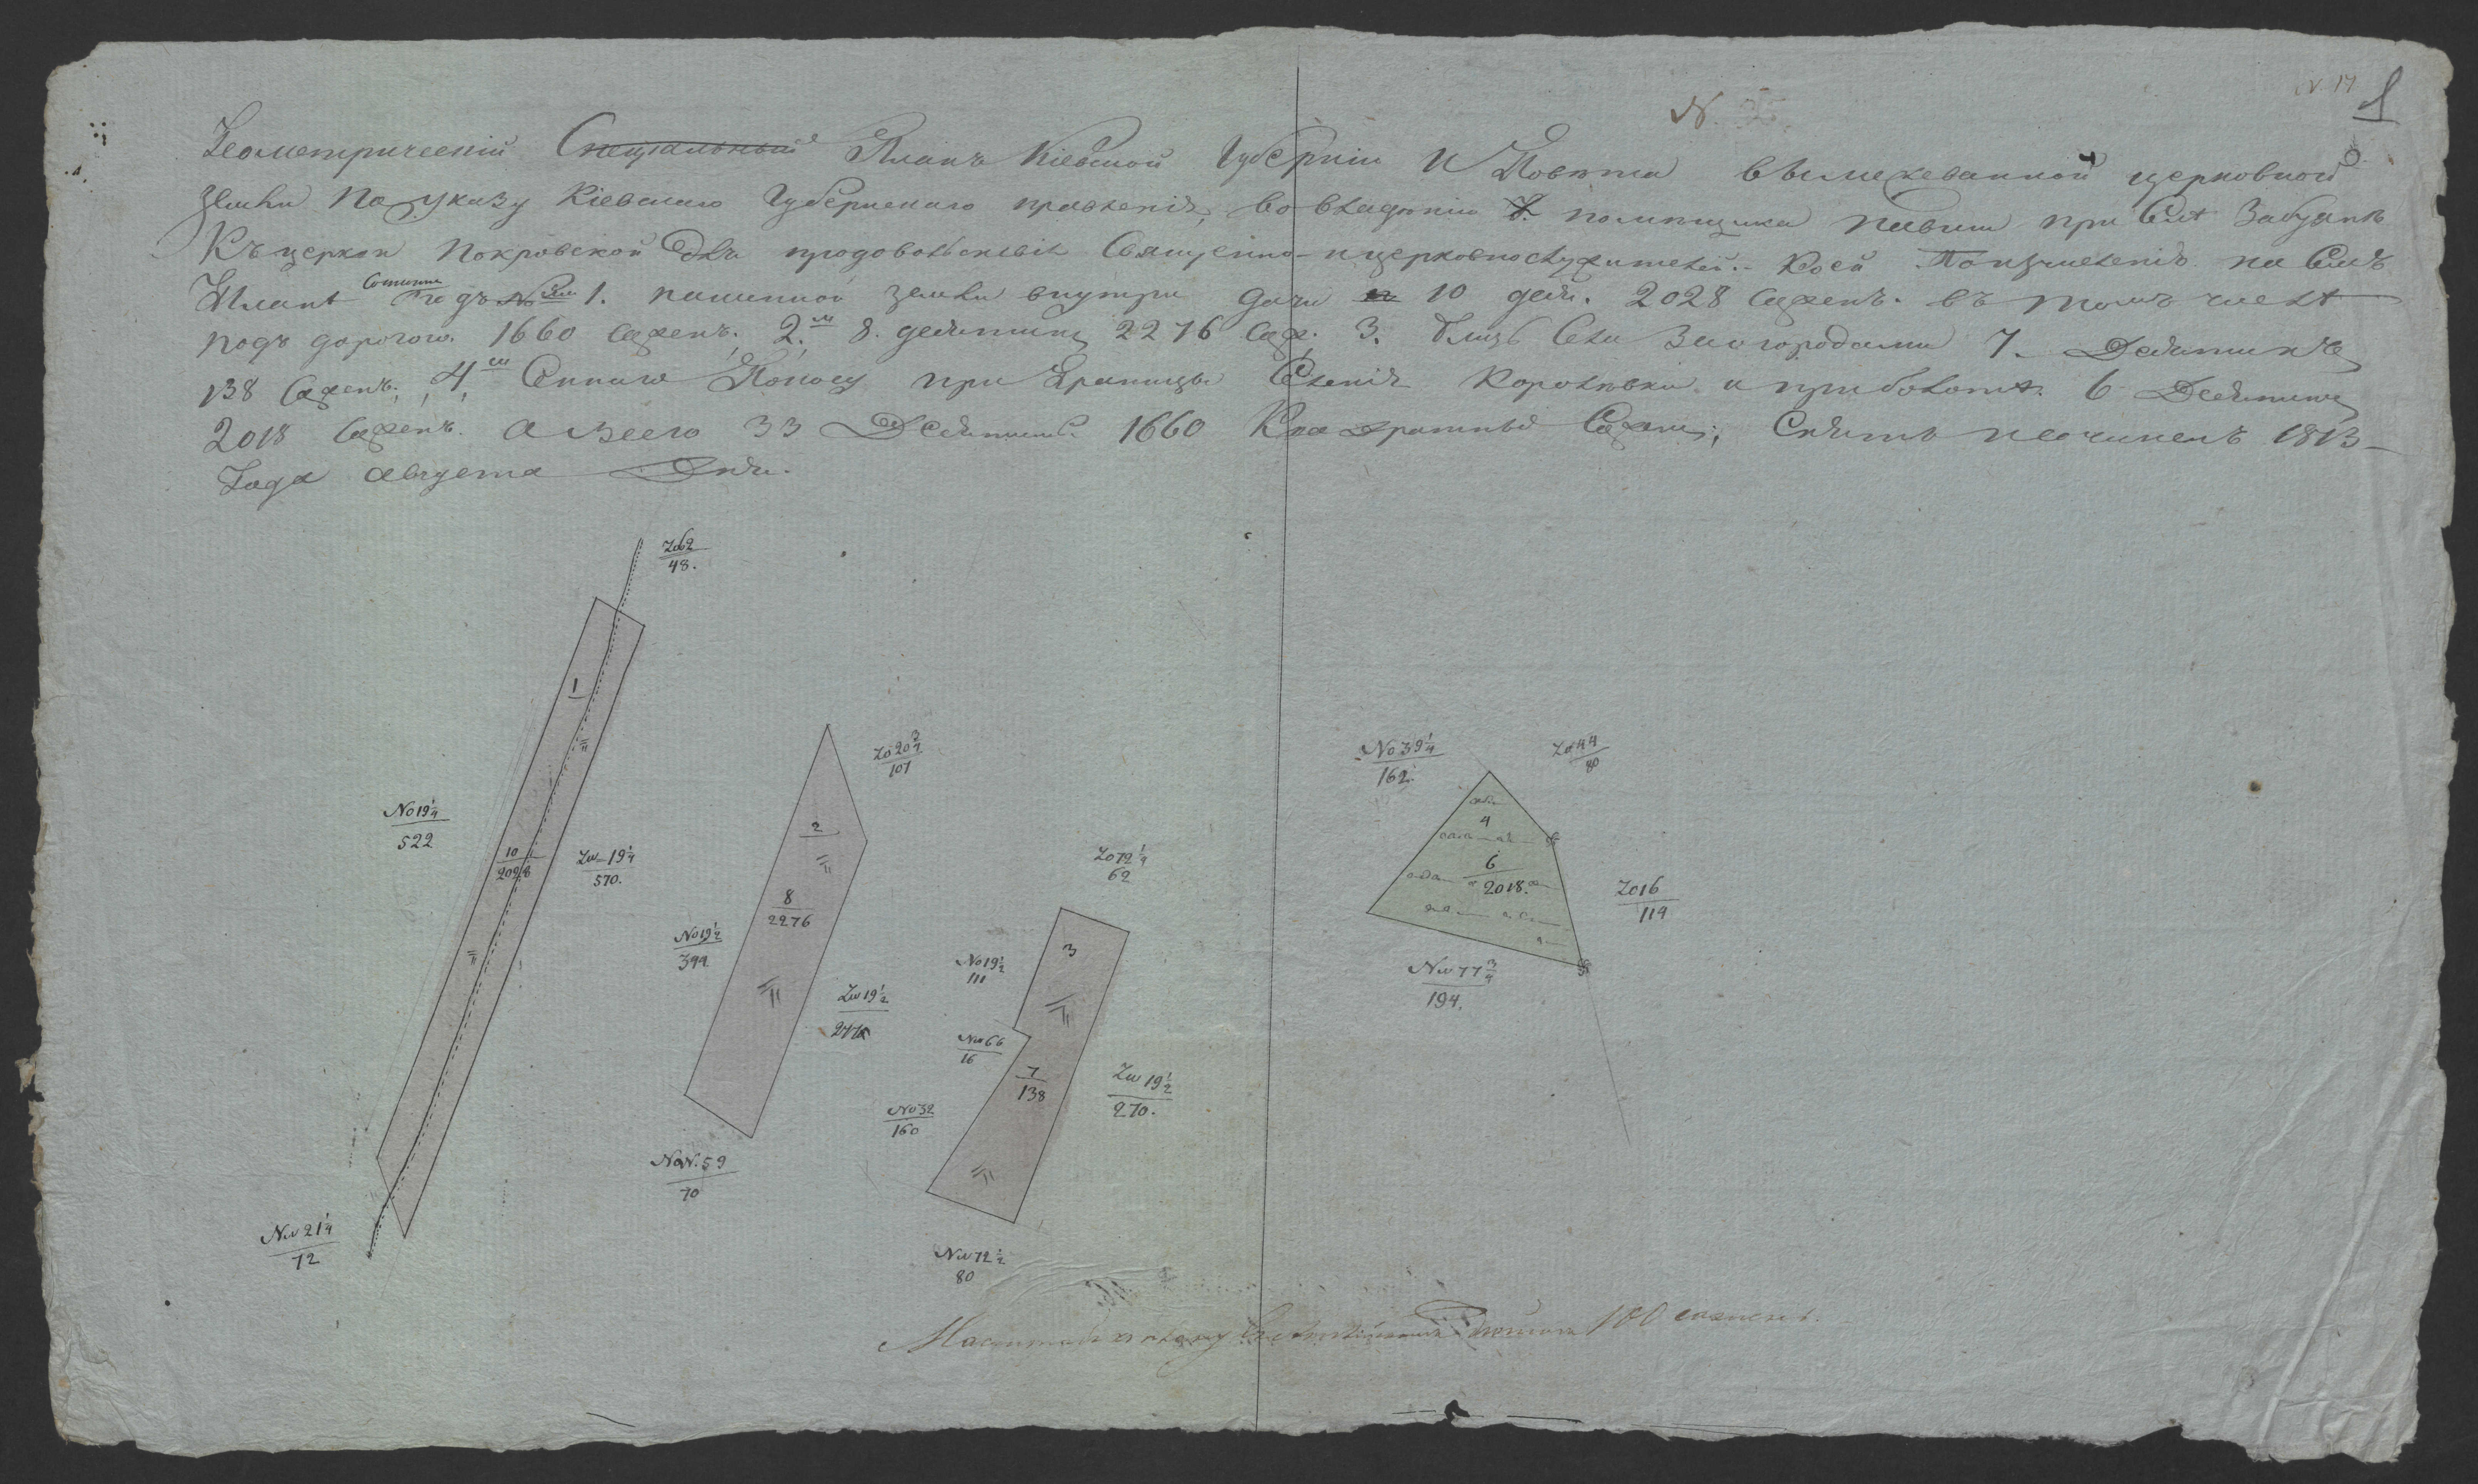 N. 2.
N 17
1
Геометрический Специальный Планъ Кіевской Губерніи и Повѣта вымежеванной церковной
земли По указу Кіевскаго Губернскаго правленія, во владѣнію помѣщика при Селѣ Забуянѣ
Къ церкви Покровской Для продовольствія Священно-и церковнослужителей. Коей По изчисленію на Семъ
Планѣ Состоитъ подъ № 1. пашенной земли внутри дачи 10 деся. 2028 саженъ. въ томъ числѣ
подъ дорогою 1660 саженъ. 2.м 8. десятинъ 2276 саж. 3. близь Села За огородами 7. Десятинъ
138 Саженъ; 4м Сеннаго Покосу при Границы Селенія Королѣвки и при болотѣ 6 Десятинъ
2018 саженъ. а всего 33 Десятины 1660 Квадратныя Сажни; Снятъ и сочиненъ 1813
Года августа Дня.
Zo 62
48.
1
No 19¼
522
10
2028
Zw 19¼
570.
Nw 21¼
72
Zo 20¾
107
2
8
2276
No 19½
399
Zw 19½
277
NW. 59
70
Zo 72¼
62
3
No 19½
111
Nw 66
16
7
138
No 32
160
Zw 19½
270.
Nw 72½
80
No 39¼
162.
Zo 44
80
4
6
2018.
Zo 16
119
Nw 77¾
194.
100 сажень.